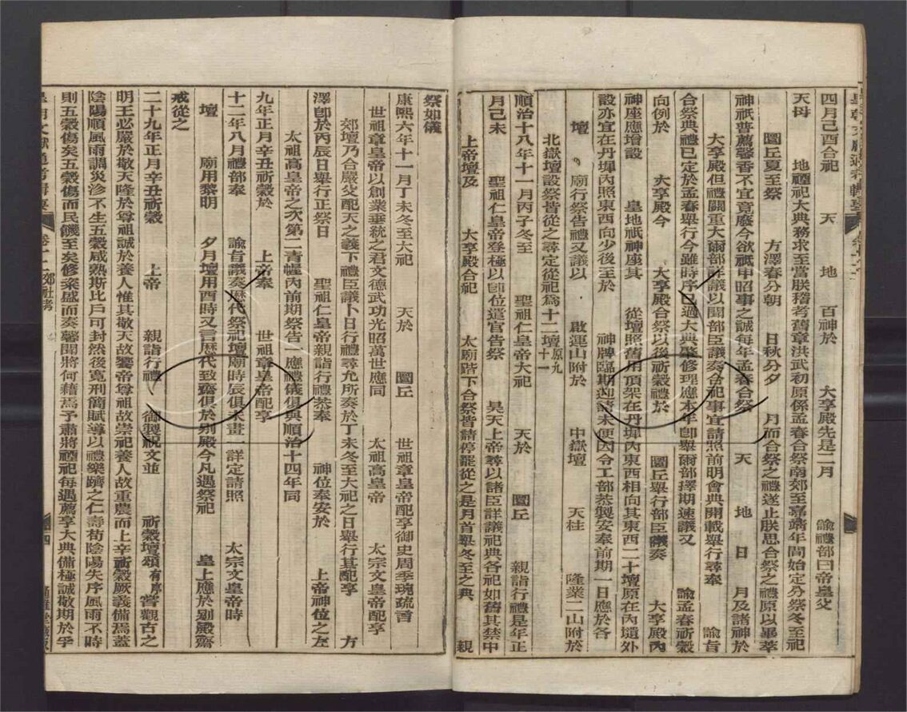 四月己酉合祀　天　地　百神於　大享殿先是二月　諭禮部曰帝皇父
天母　地禋祀大典務求至當朕稽考舊章洪武初原係孟春合祭南郊至嘉靖年間始定分祭冬至祀
圜丘夏至祭　方澤春分朝　日秋分夕　月而合祭之禮遂止朕思合祭之禮原以畢萃
神祇普薦馨香不宜竟廢今欲祇申昭事之誠每年孟春合祭　天　地　日　月及諸神於
大享殿但禮關重大爾部詳議以聞部臣議奏合祀事宜請照前明會典開載舉行尋奉　諭旨
合祭典禮已定於孟春舉行今雖時序已過大典肇修理應本年卽舉爾部擇期速議又　諭孟春祈穀
向例於　大享殿今　大享殿合祭以後祈穀禮於　圜丘舉行部臣議奏　大享殿內
神座應增設　皇地祇神座其　從壇照舊用頂架在丹墀內東西相向其東西二十壇原在內壝外
設亦宜在丹墀內照東西向少後至於　神牌臨期迎請未便因令工部恭製安奉前期一日應於各
壇　廟行祭告禮又議以　啟運山附於　中嶽壇　天柱　隆業二山附於
北嶽壇設祭皆從之尋定從祀爲十二壇原九十一
順治十八年十一月丙子冬至　聖祖仁皇帝大祀　天於　圜丘　親詣行禮是年正
月己未　聖祖仁皇帝登極以卽位遣官告祭　昊天上帝尋以諸臣詳議祀典各祀如舊其禁中
上帝壇及　大享殿合祀　太廟階下合祭皆請停罷從之是月首舉冬至之典　親
祭如儀
康熙六年十一月丁未冬至大祀　天於　圜丘　世祖章皇帝配享御史周季琬疏言
世祖章皇帝以創業垂統之君文德武功光照萬世應同　太祖高皇帝　太宗文皇帝配享
郊壇乃合嚴父配天之義下禮臣議卜日行禮尋允所奏於丁未冬至大祀之日舉行其配享　方
澤卽於丙辰日舉行正祭日　聖祖仁皇帝親詣行禮恭奉　神位奉安於　上帝神位之左
太祖高皇帝之次第二青幄內前期祭告一應禮儀俱與順治十四年同
九年正月辛丑祈穀於　上帝奉　世祖章皇帝配享
十二年八月禮部奉　諭旨議奏歷代祭祀壇廟時辰俱未畫一詳定請照　太宗文皇帝時
壇　廟用黎明　夕月壇用酉時又言歷代致齋俱於别殿今凡遇祭祀　皇上應於别殿齋
戒從之
二十九年正月辛丑祈穀　上帝　親詣行禮　御製祝文並　祈穀壇頌有序嘗觀古之
明王必嚴於敬天隆於尊祖誠於養人惟其敬天故饗帝尊祖故崇祀養人故重農而上辛祈穀厥義備焉蓋
陰陽順風雨調災沴不生五穀咸熟斯比戶可封然後寬刑簡賦導以禮樂躋之仁壽苟陰陽失序風雨不時
則五穀傷矣五穀傷而民饑至矣修粢盛而奏馨聞將何藉焉予肅將禋祀每遇薦享大典備極誠敬期於孚